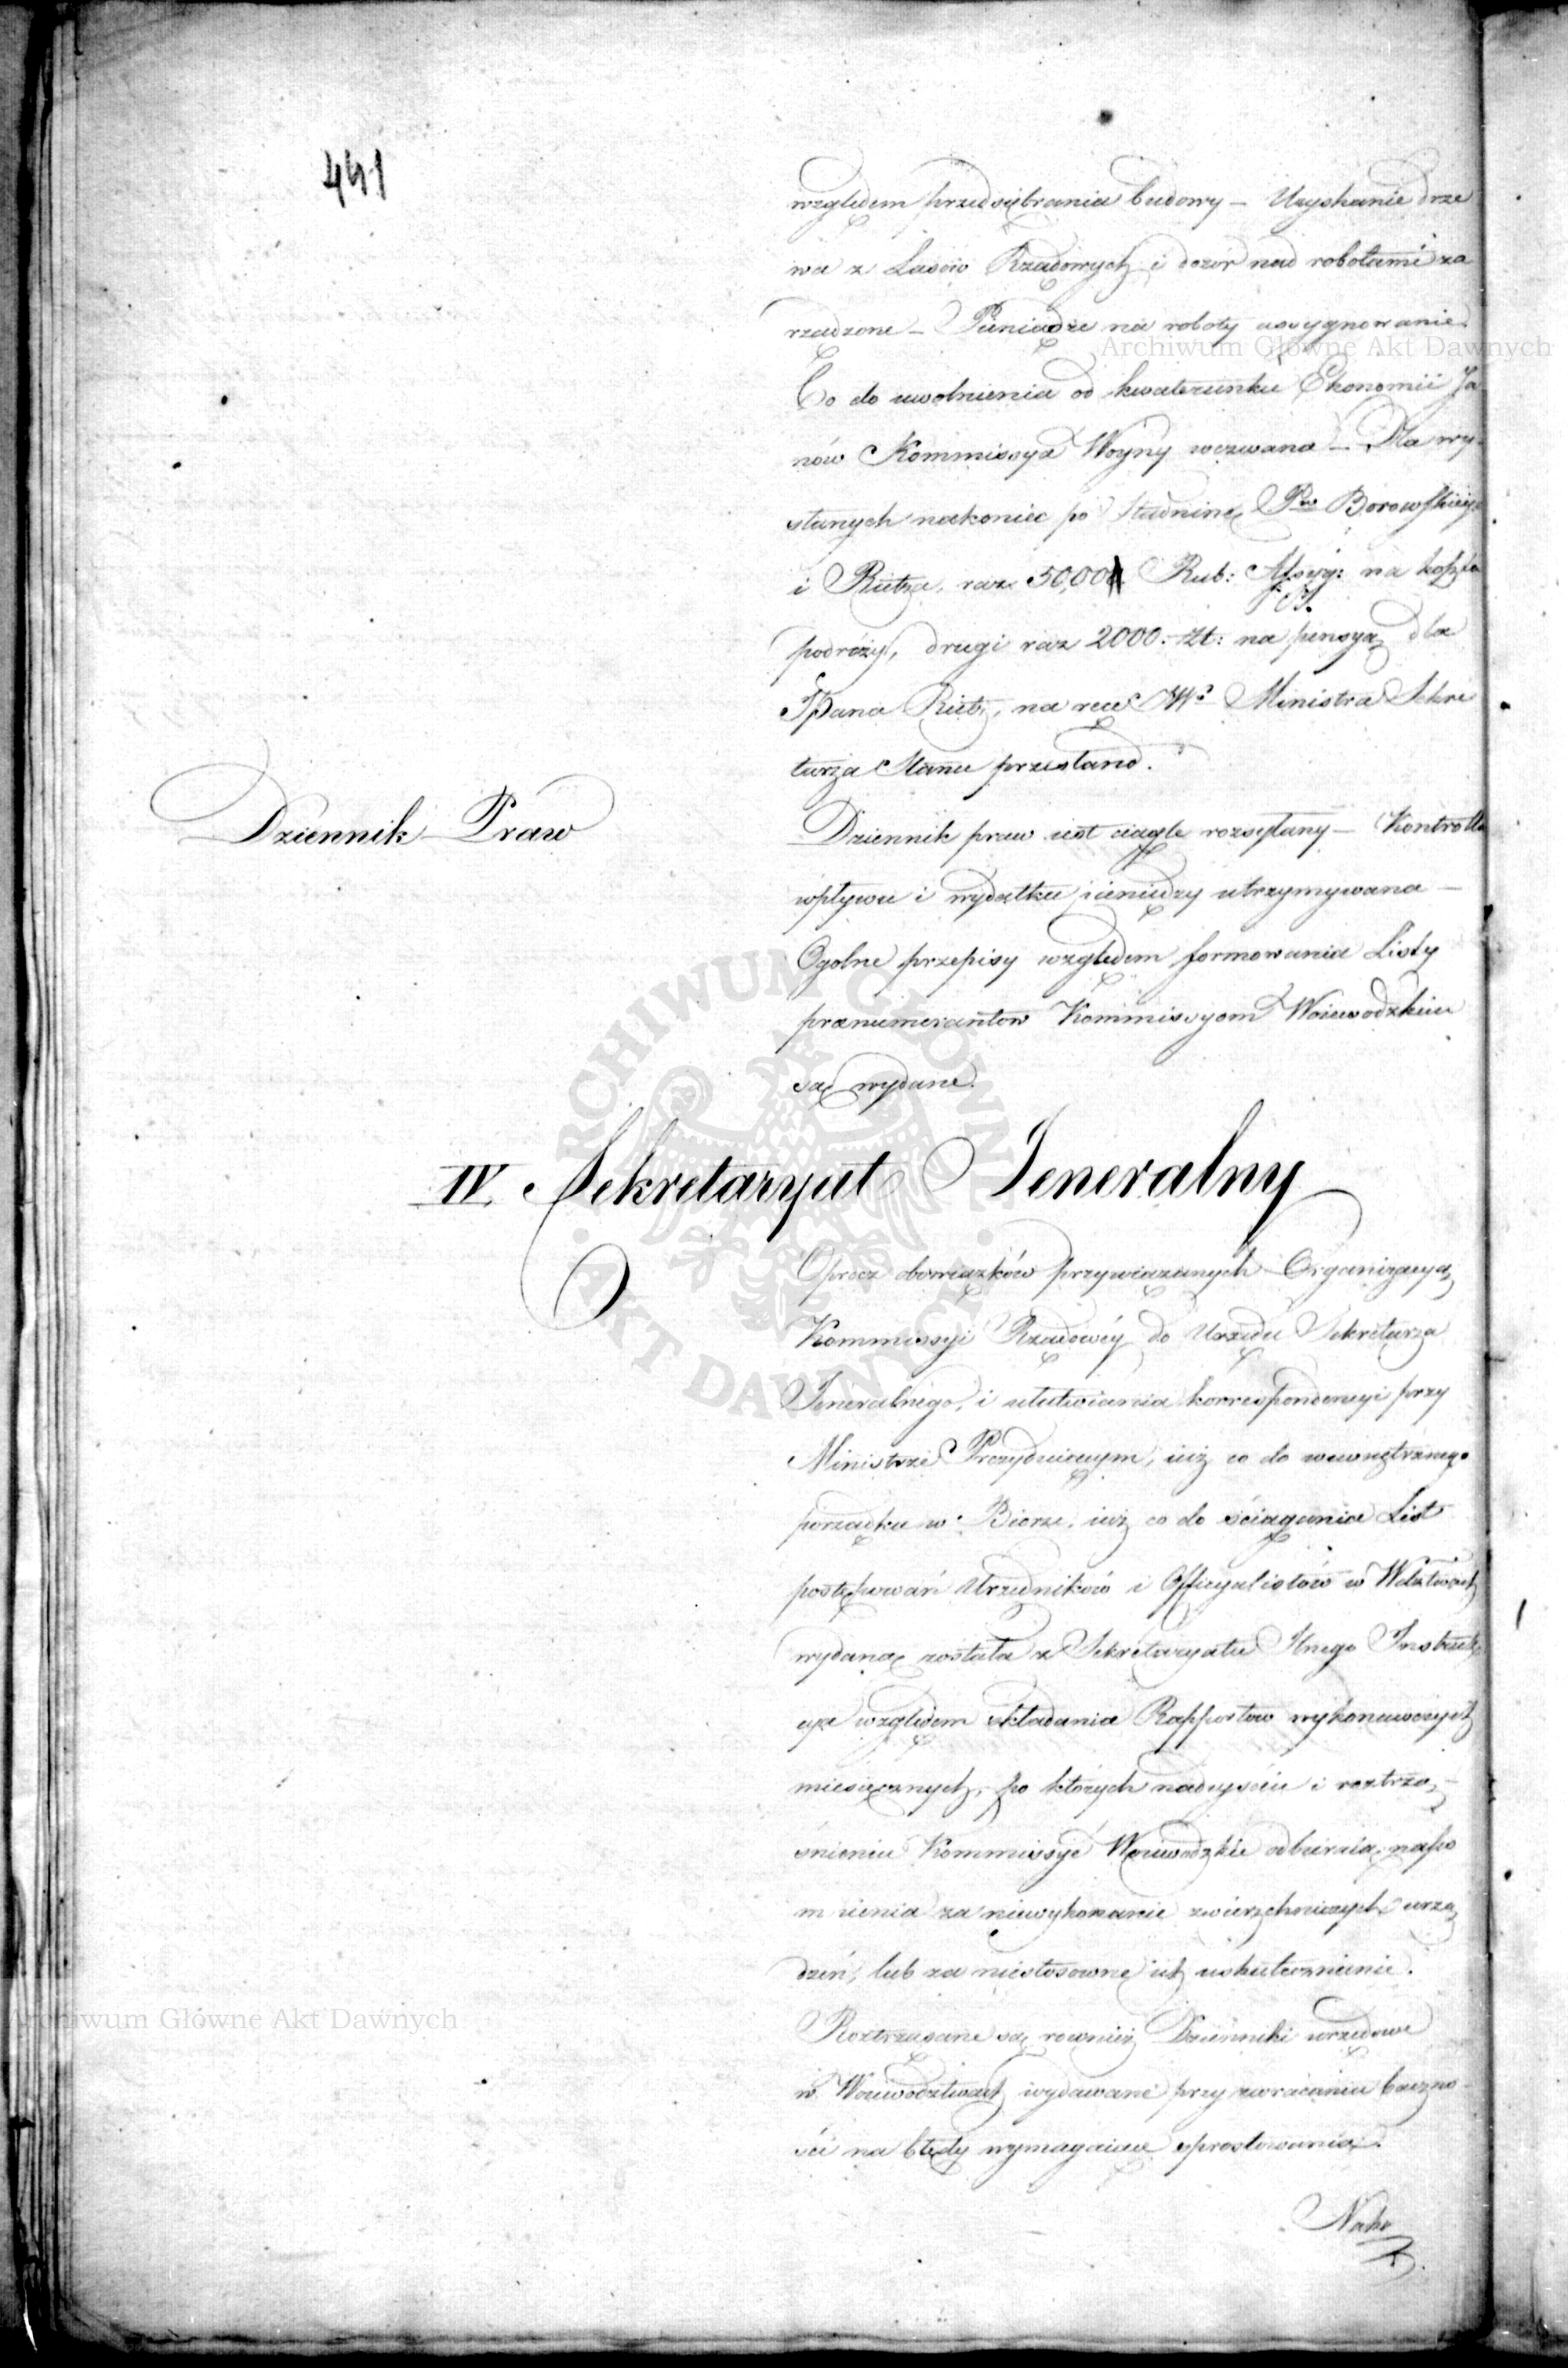 441
względem przedsiębrania budowy – Uzyskanie drze
wa z Lasów Rządowych i dozór nad robotami za
rządzone – Pieniądze na roboty assygnowane.
Co do uwolnienia od kwaterunku Ekonomii Ja
nów Kommissya Woyny wezwana – Dla wy
słanych nakoniec po stadninę Pw Borowskiey
i Rietza, raz 50,00 Rub: Assyg: na koszta
podróży, drugi raz 2000. Zł: na pensyą dla
JPana Rietz, na ręce Ministra Sekre
tarza Stanu przesłano.
Dziennik Praw
Dziennik praw iest ciągle rozsyłany – Kontrolla
wpływu i wydatku pieniędzy utrzymywana –
Ogolne przepisy względem formowania Listy
prænumerantow Kommissyom Woiewodzkim
są wydane.
IV. Sekretaryat Jeneralny
Oprocz obowiązków przywiązanych Organizacyą
Kommissyi Rządowéy do Urzędu Sekretarza
Jeneralnego, i ułatwiania korrespondencyi przy
Ministrze Prezyduiącym, iuż co do wewnętrznego
porządku w Biorze, iuż co do ściągania List
postępowań Urzędników i Officyalistów w Wdztwach
wydaną została z Sekretaryatu Jlnego Instruk
cya względem składania Rapportow wykonawczych
miesięcznych, po których nadeyściu i roztrzą
śnieniu Kommissye Woiewodzkie odbieraią napo
mnienia za niewykonanie zwierzchniczych urzą
dzeń, lub za niestosowne ich uskutecznienie.
Roztrząsane są rownież Dzienniki urzędowe
w Woiewodztwach wydawane przy zwracaniu baczno
ści na błędy wymagaiące sprostowania.
Nako
Archiwum Główne Akt Dawnych
Archiwum Główne Akt Dawnych
ARCHIWUM GŁÓWNE AKT DAWNYCH